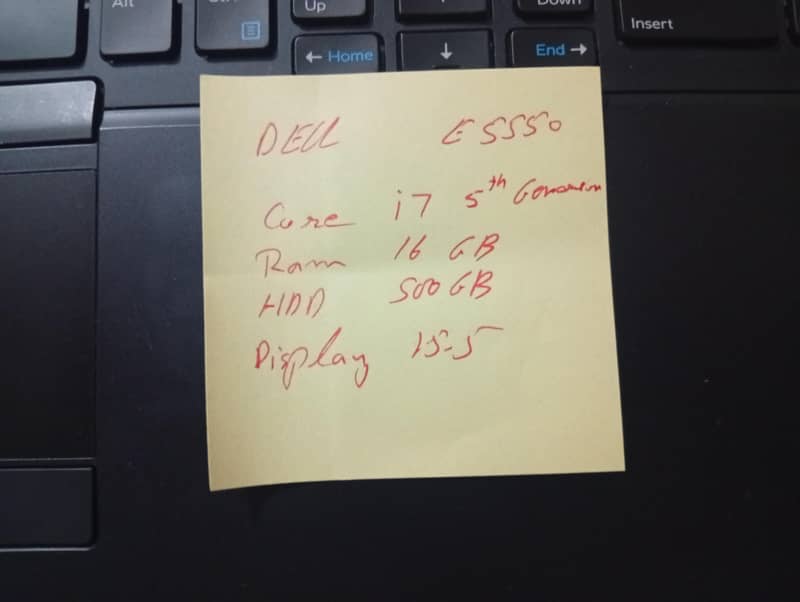 Alt
Ctrl
Up
Down
Insert
← Home
↓
End →
DELL E5550
Core i7 5th Generation
Ram 16 GB
HDD 500 GB
Display 15.5